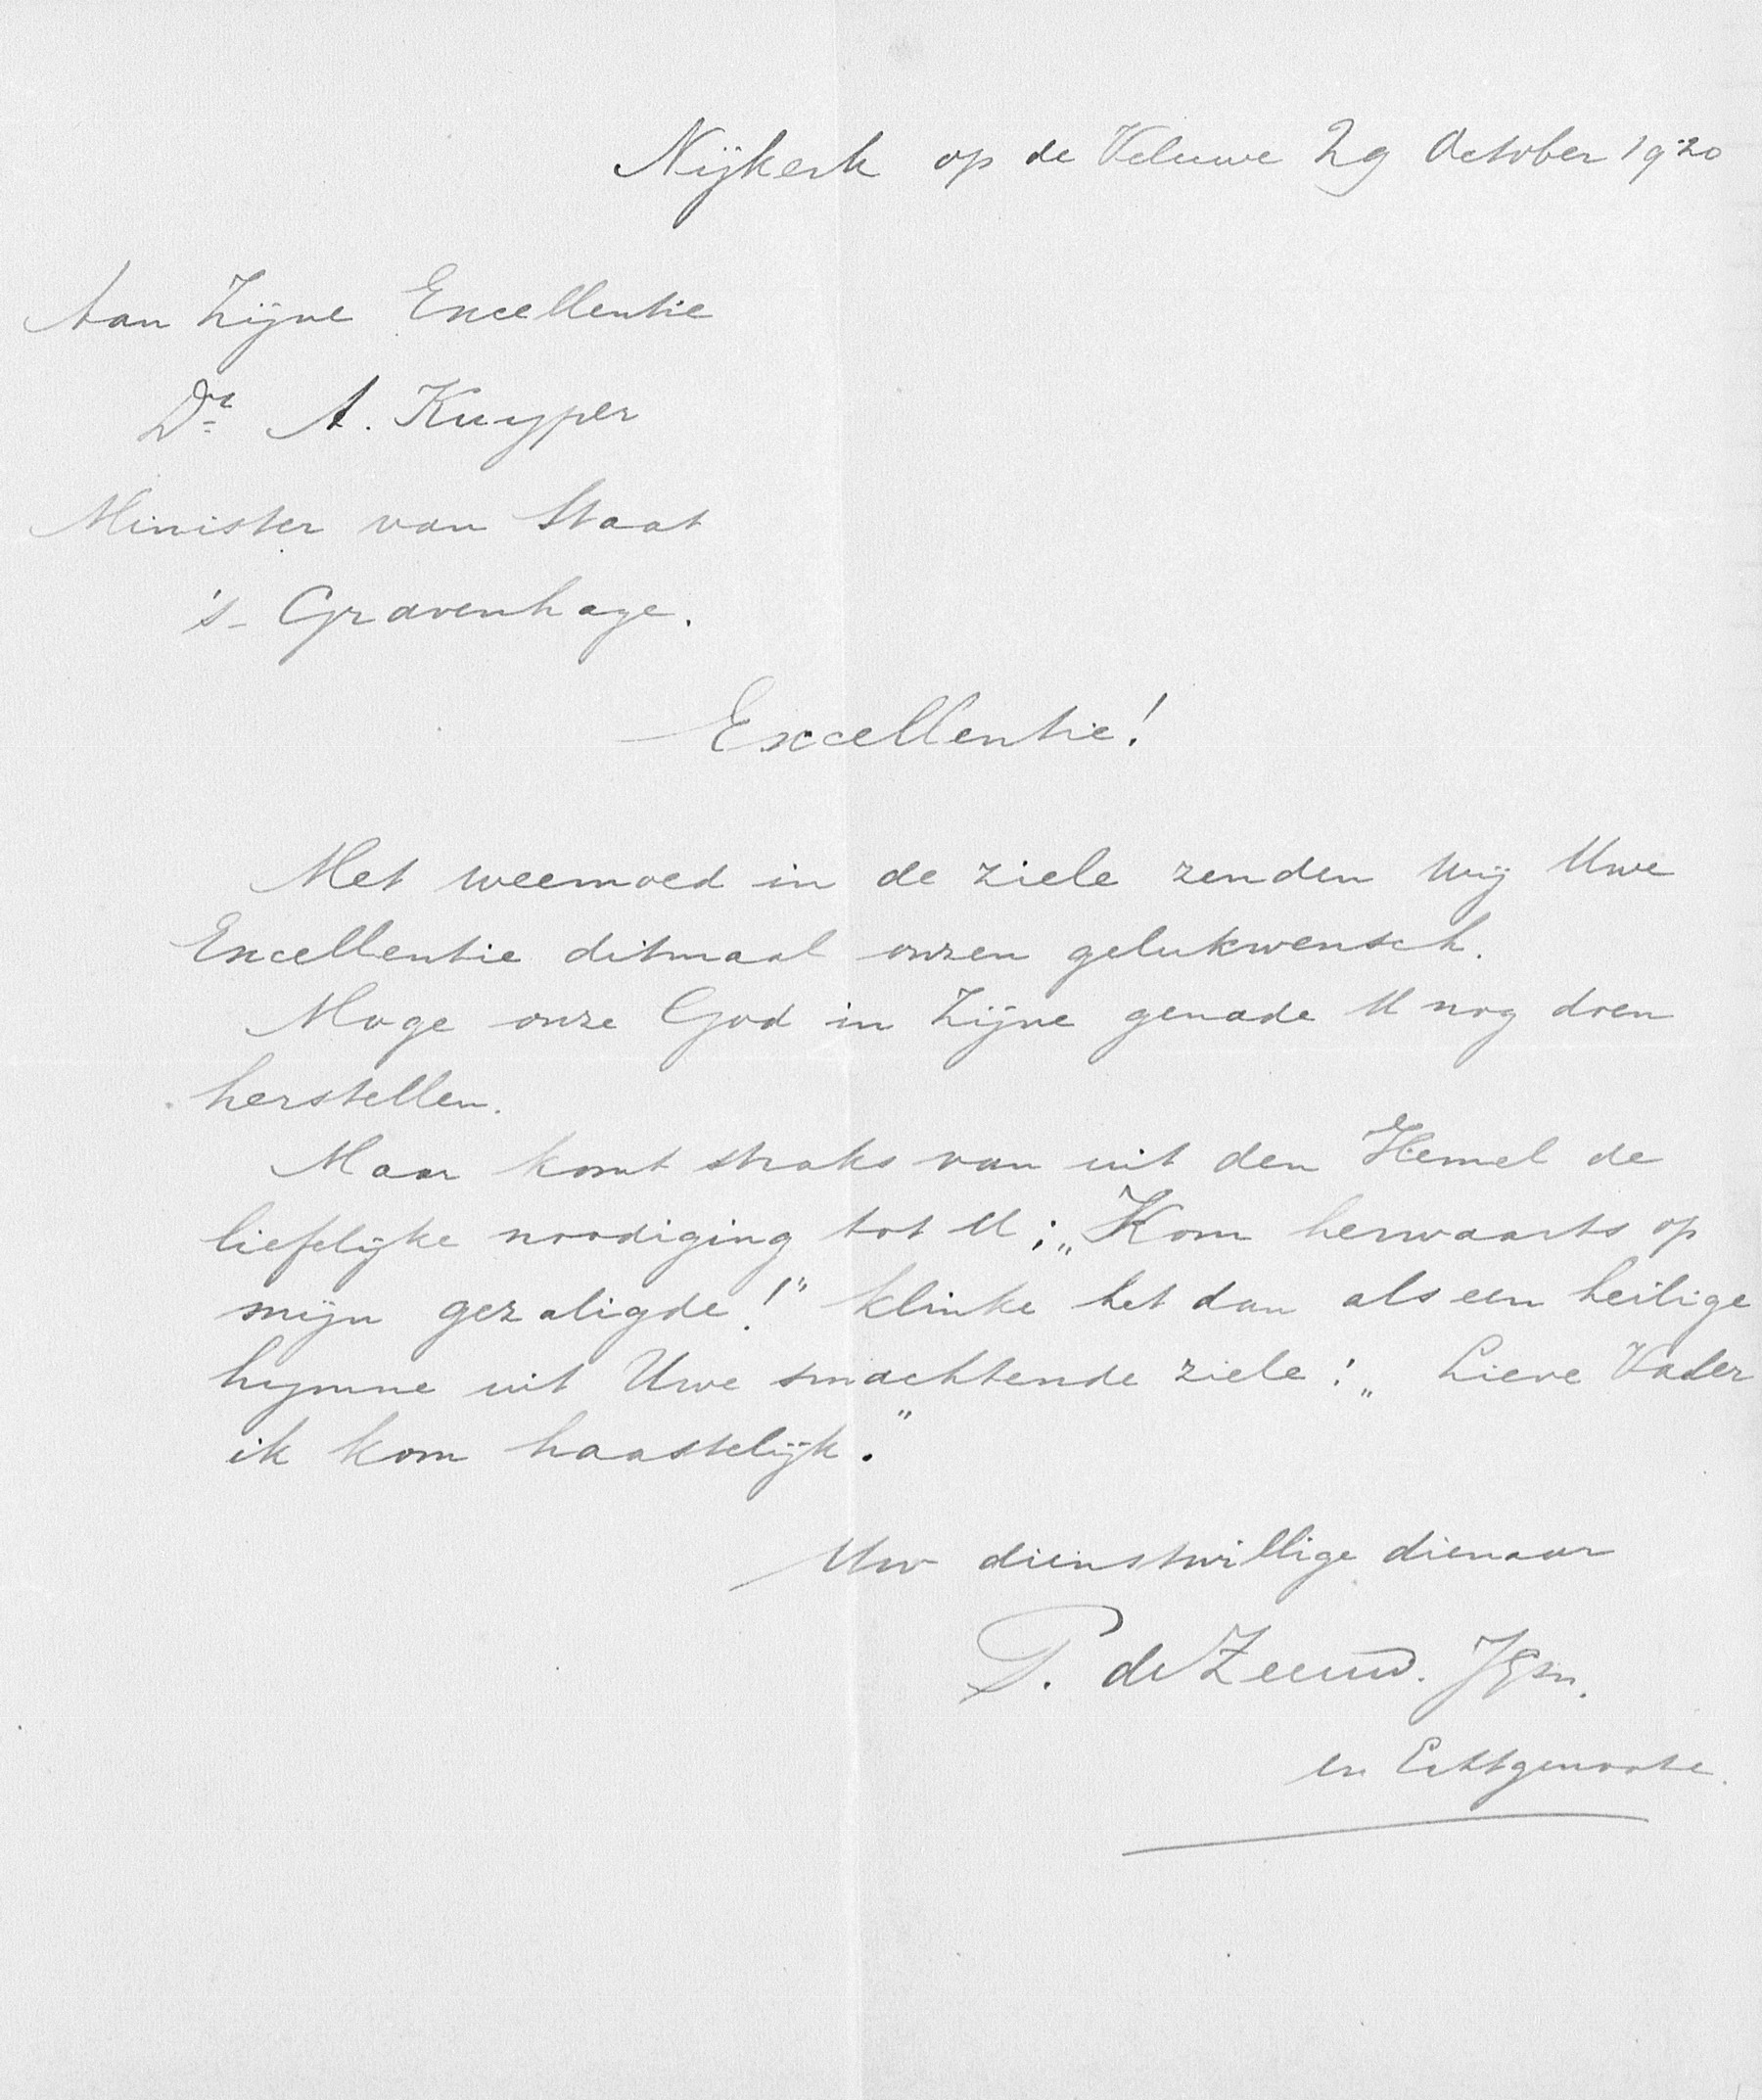 Nijkerk op de Veluwe 29 October 1920
Aan Zijne Excellentie
Dr A. Kuyper
Minister van Staat
's-Gravenhage.
Excellentie!
Met weemoed in de ziele zenden wij Uwe
Excellentie ditmaal onzen gelukwensch.
Moge onze God in Zijne genade U nog doen
herstellen.
Maar komt straks van uit den Hemel de
liefelijke noodiging tot U: „Kom herwaarts op
mijn gezaligde!" klinke het dan als een heilige
hymne uit Uwe smachtende ziele: „Lieve Vader
ik kom haastelijk."
Uw dienstwillige dienaar
P. de Zeeuw. JGzn.
en Echtgenoote.